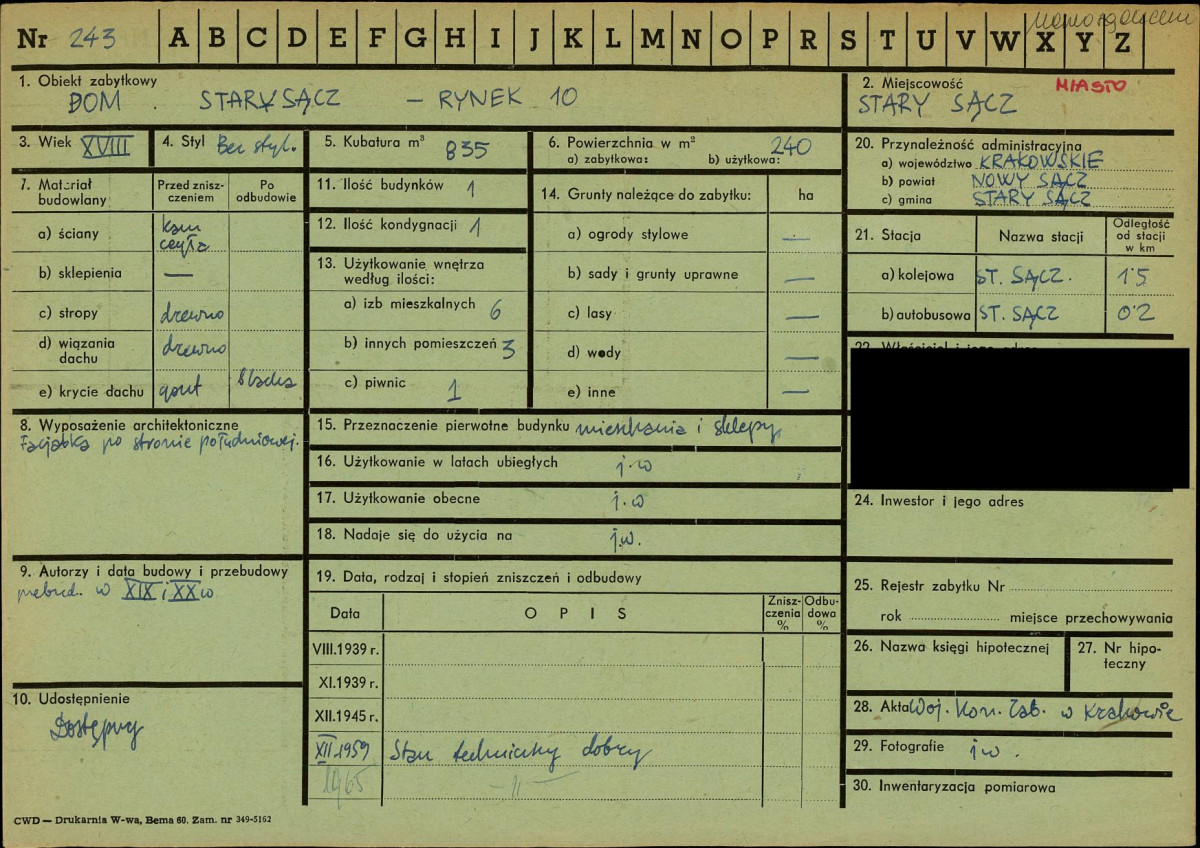 Nr 243 A B C D E F G H I J K L M N O P R S T U V W X Y Z
1. Obiekt zabytkowy
DOM . STARY SĄCZ – RYNEK 10
2. Miejscowość MIASTO
STARY SĄCZ
3. Wiek XVIII
4. Styl Bez styl.
5. Kubatura m³ 835
6. Powierzchnia w m² 240
a) zabytkowa: b) użytkowa:
7. Materiał budowlany
Przed zniszczeniem
Po odbudowie
a) ściany kam cegła
b) sklepienia —
c) stropy drewno
d) wiązania dachu drewno
e) krycie dachu gont blacha
8. Wyposażenie architektoniczne
Facjatka po stronie południowej.
9. Autorzy i data budowy i przebudowy
przebud. w XIX i XX w
10. Udostępnienie
Dostępny
11. Ilość budynków 1
12. Ilość kondygnacji 1
13. Użytkowanie wnętrza według ilości:
a) izb mieszkalnych 6
b) innych pomieszczeń 3
c) piwnic 1
14. Grunty należące do zabytku: ha
a) ogrody stylowe —
b) sady i grunty uprawne —
c) lasy —
d) wody —
e) inne —
15. Przeznaczenie pierwotne budynku mieszkania i sklepy
16. Użytkowanie w latach ubiegłych j.w
17. Użytkowanie obecne j.w
18. Nadaje się do użycia na j.w.
19. Data, rodzaj i stopień zniszczeń i odbudowy
Data OPIS Zniszczenia % Odbudowa %
VIII.1939 r.
XI.1939 r.
XII.1945 r.
XII.1959 Stan techniczny dobry
1965 —"—
20. Przynależność administracyjna
a) województwo KRAKOWSKIE
b) powiat NOWY SĄCZ
c) gmina STARY SĄCZ
21. Stacja Nazwa stacji Odległość od stacji w km
a) kolejowa ST. SĄCZ. 1.5
b) autobusowa ST. SĄCZ 0.2
22. Właściciel i jego adres
24. Inwestor i jego adres
25. Rejestr zabytku Nr
rok miejsce przechowywania
26. Nazwa księgi hipotecznej
27. Nr hipoteczny
28. Akta Woj. Kon. Zab. w Krakowie
29. Fotografie j w .
30. Inwentaryzacja pomiarowa
CWD — Drukarnia W-wa, Bema 60. Zam. nr 349-5162